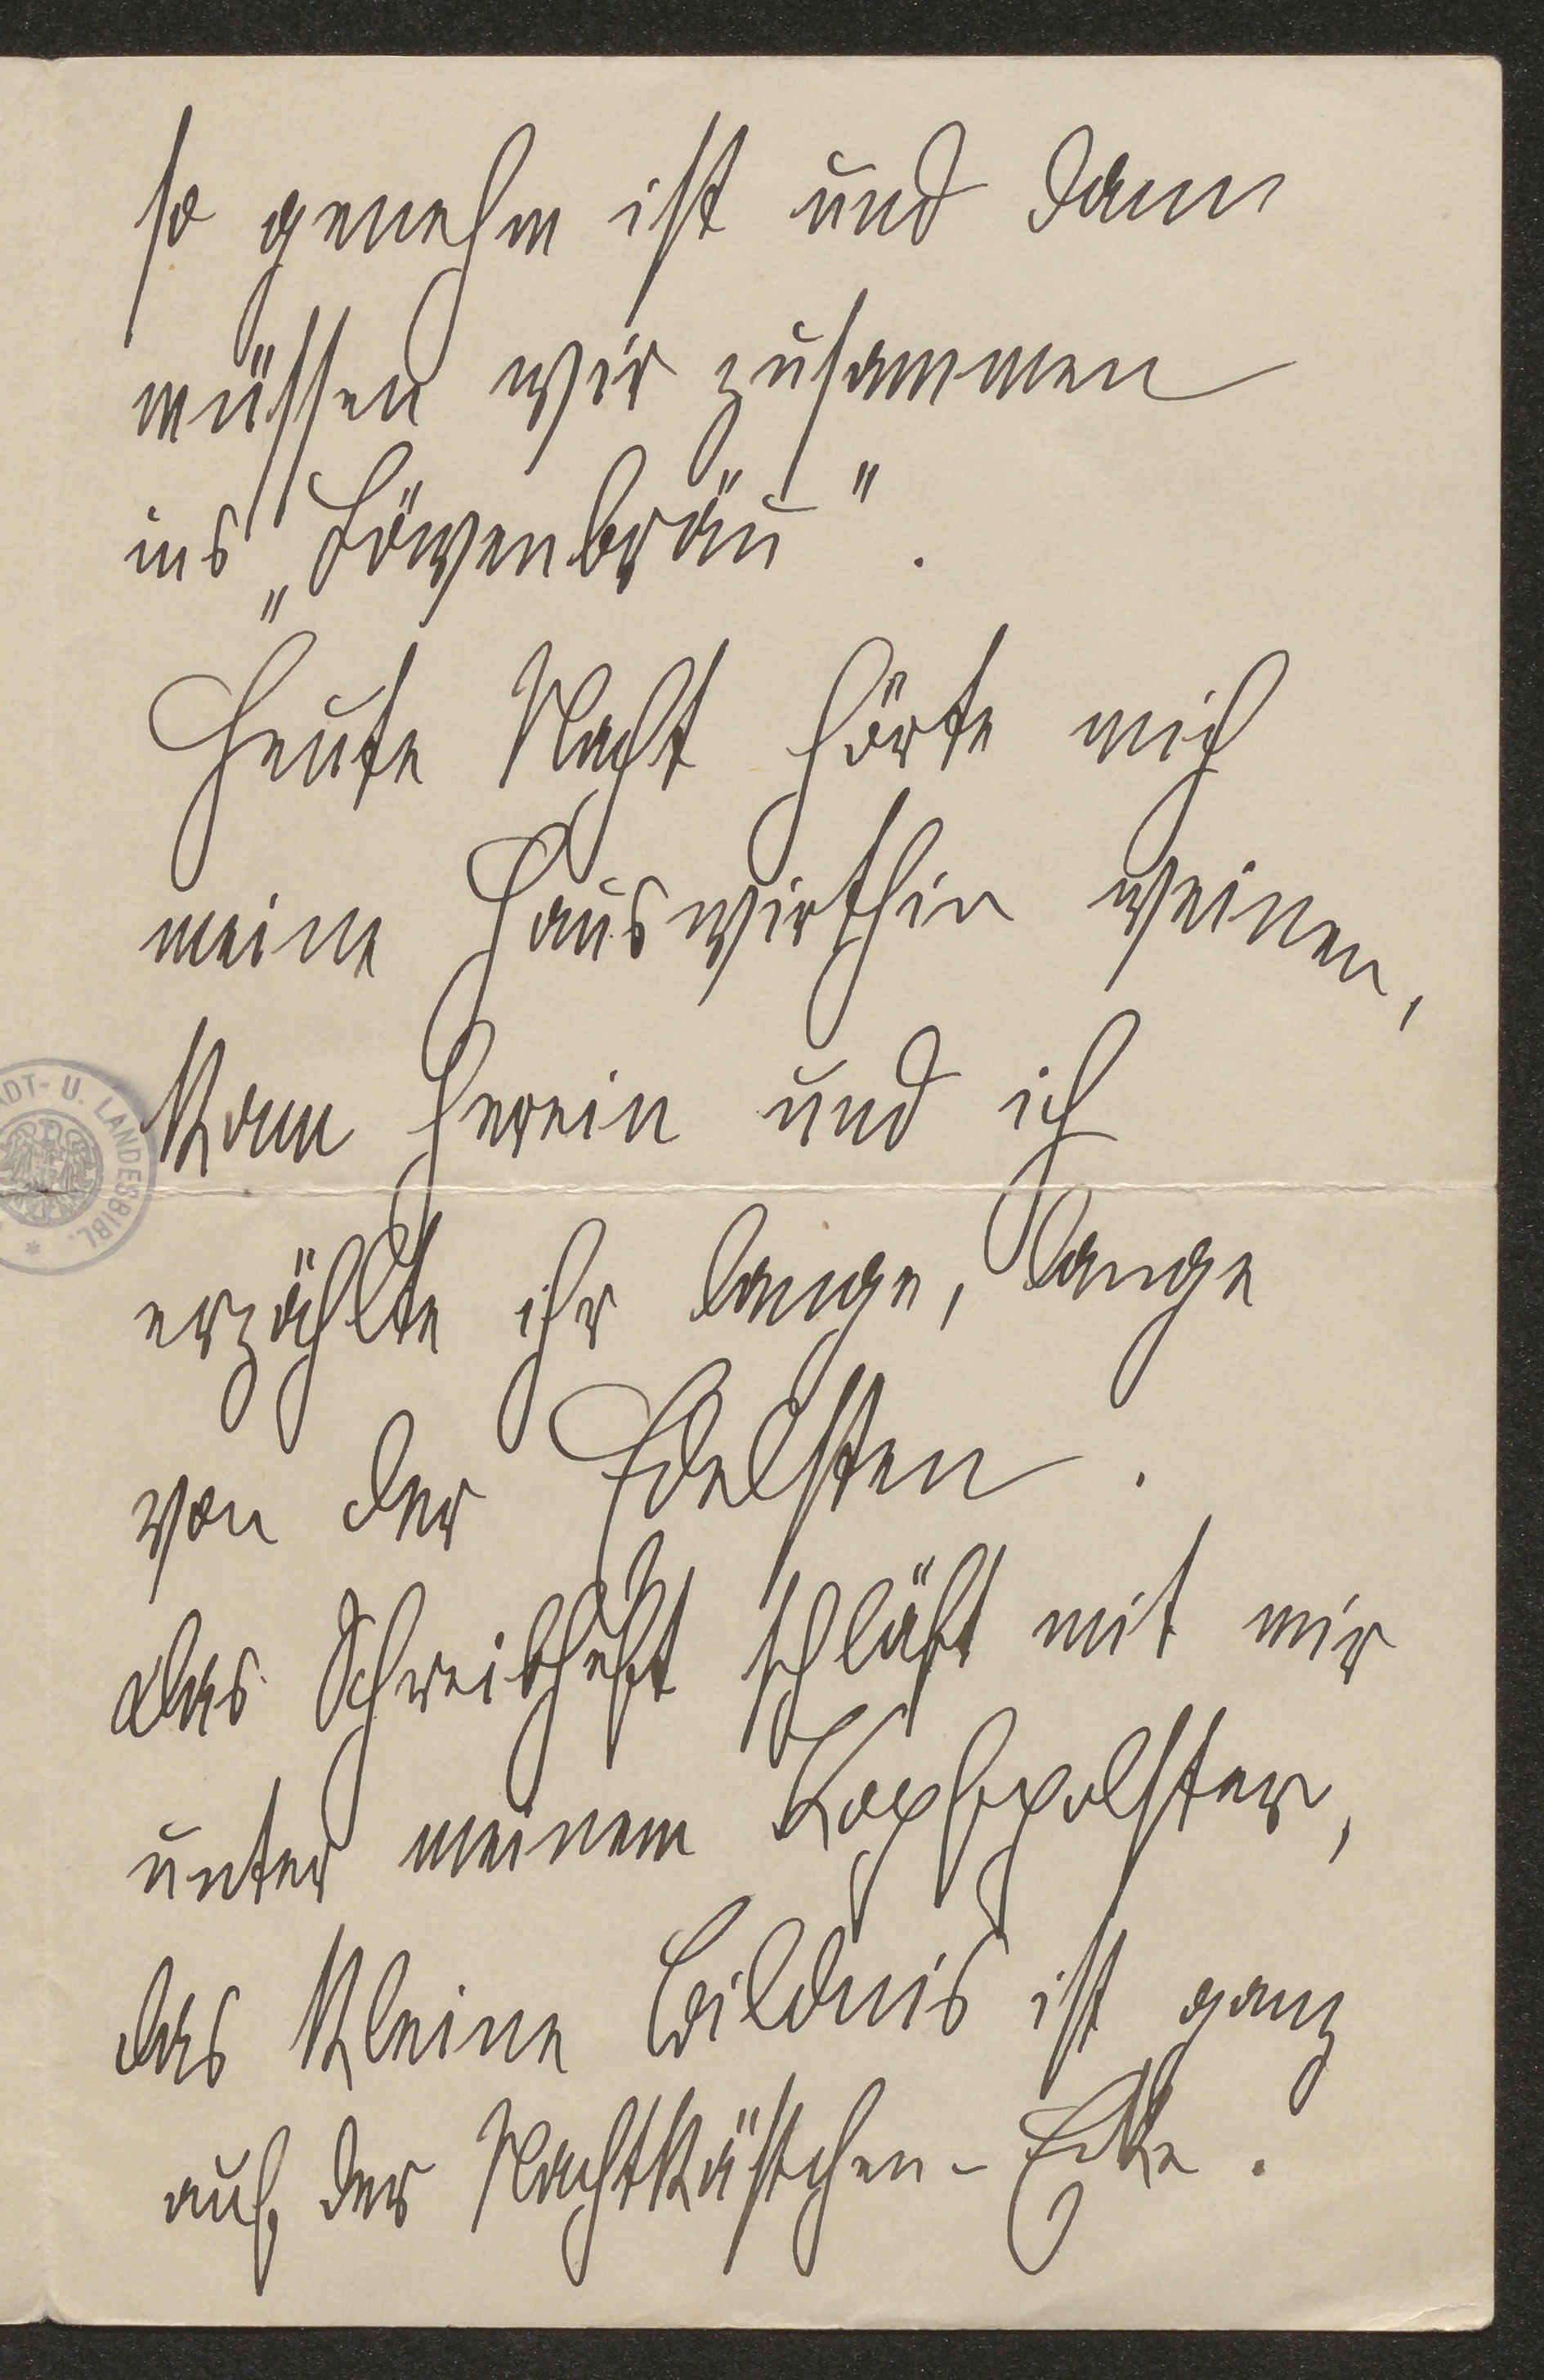 so genehm ist und dann
müssen wir zusammen
ins „Löwenbräu“.
Heute Nacht hörte mich
meine Hauswirthin weinen,
kam herein und ich
erzählte ihr lange, lange
von der Edelsten.
Das Schreibheft schläft mit mir
unter meinem Kopfpolster,
das kleine Bildnis ist ganz
auf der Nachtkästchen-Ecke.
ADT- U. LANDESBIBL.